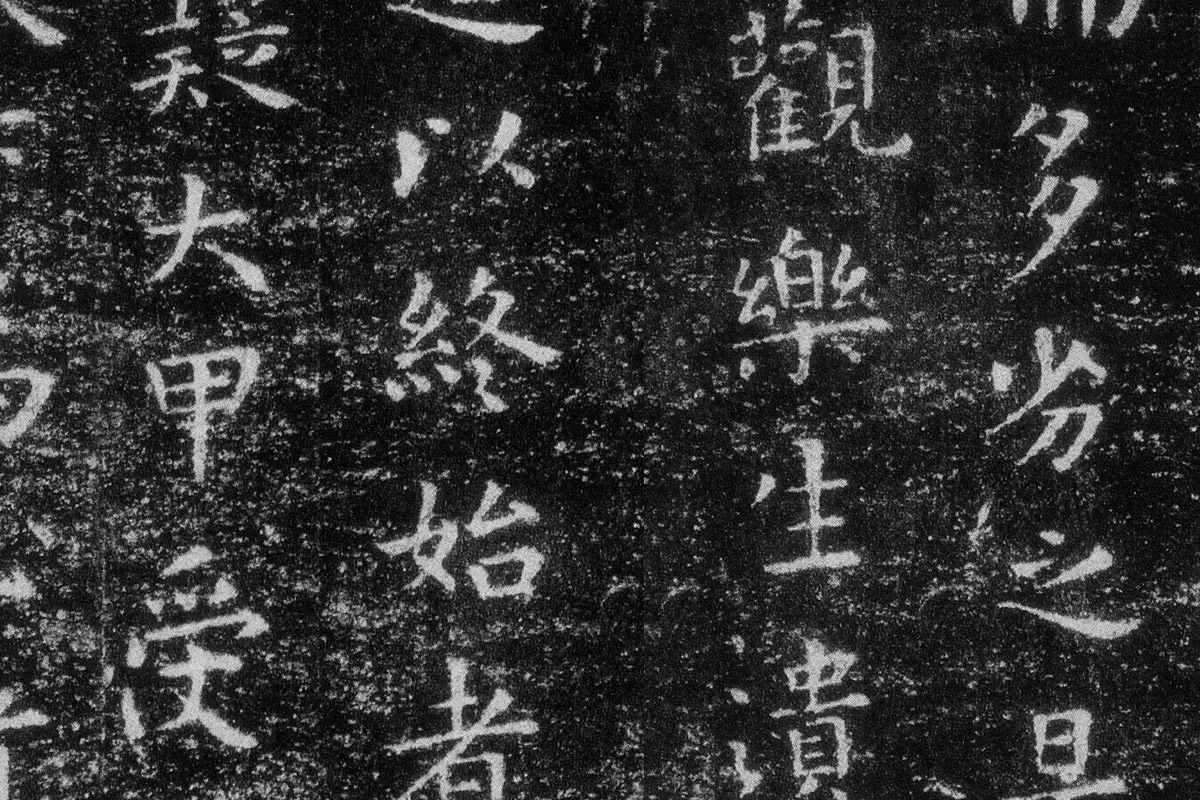 而多劣之是
觀樂生遺
以終始者
疑大甲受